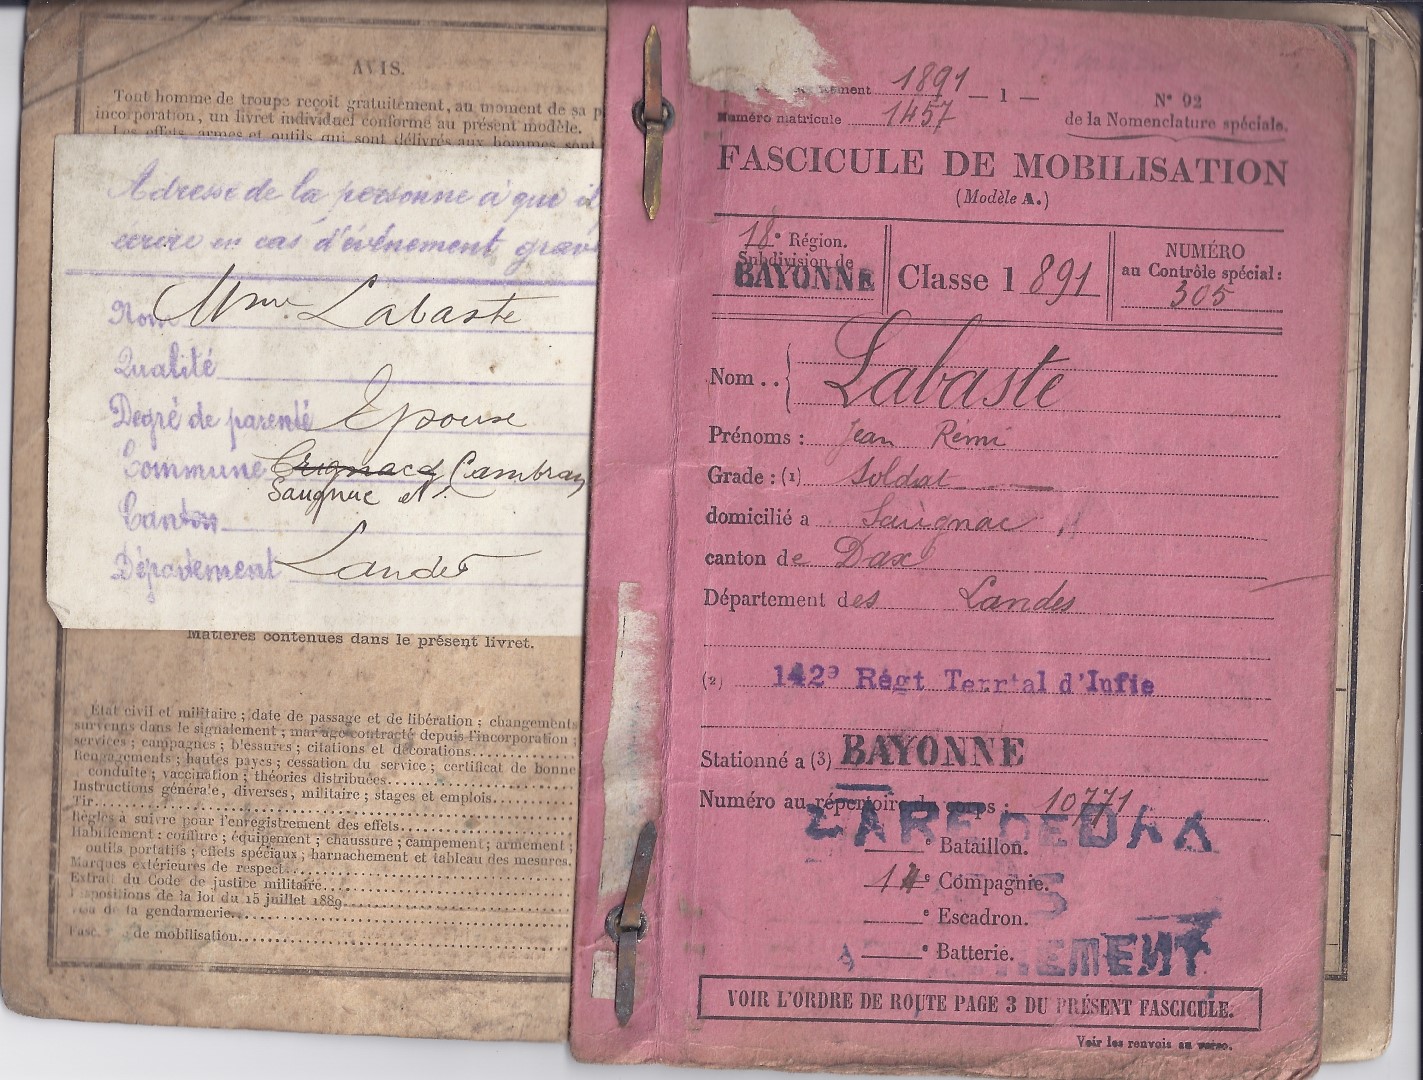 AVIS.
Tout homme de troupe reçoit gratuitement, au moment de sa p
incorporation, un livret individuel conforme au présent modèle.
Les effets, armes et outils qui sont délivrés aux hommes sont
Adresse de la personne à qui il
écrire en cas d'événement grave
Nom Mme Labaste
Qualité
Degré de parenté Epouse
Commune Cambran
Saugnac et
Canton
Département Landes
Matières contenues dans le présent livret.
Etat civil et militaire ; date de passage et de libération ; changements
survenus dans le signalement ; mariage contracté depuis l'incorporation ;
services ; campagnes ; blessures ; citations et décorations
Rengagements ; hautes payes ; cessation du service ; certificat de bonne
conduite ; vaccination ; théories distribuées
Instructions générale, diverses, militaire ; stages et emplois
Tir
Règles à suivre pour l'enregistrement des effets
Habillement : coiffure ; équipement ; chaussure ; campement ; armement ;
outils portatifs ; effets spéciaux ; harnachement et tableau des mesures.
Marques extérieures de respect
Extrait du Code de justice militaire
Dispositions de la loi du 15 juillet 1889
de la gendarmerie
Fasc. de mobilisation
ment 1891 — 1 —
Numéro matricule 1457
N° 92
de la Nomenclature spéciale.
FASCICULE DE MOBILISATION
(Modèle A.)
18e Région.
Subdivision de
BAYONNE
Classe 1891
NUMÉRO
au Contrôle spécial :
305
Nom .. Labaste
Prénoms : Jean Rémi
Grade : (1) Soldat
domicilié a Saugnac
canton de Dax
Département des Landes
(2) 142e Régt Terrtal d'Infie
Stationné a (3) BAYONNE
Numéro au répertoire du corps : 10771
GARE DE DAX
e Bataillon.
e Compagnie.
e Escadron.
e Batterie.
VOIR L'ORDRE DE ROUTE PAGE 3 DU PRÉSENT FASCICULE.
Voir les renvois au verso.